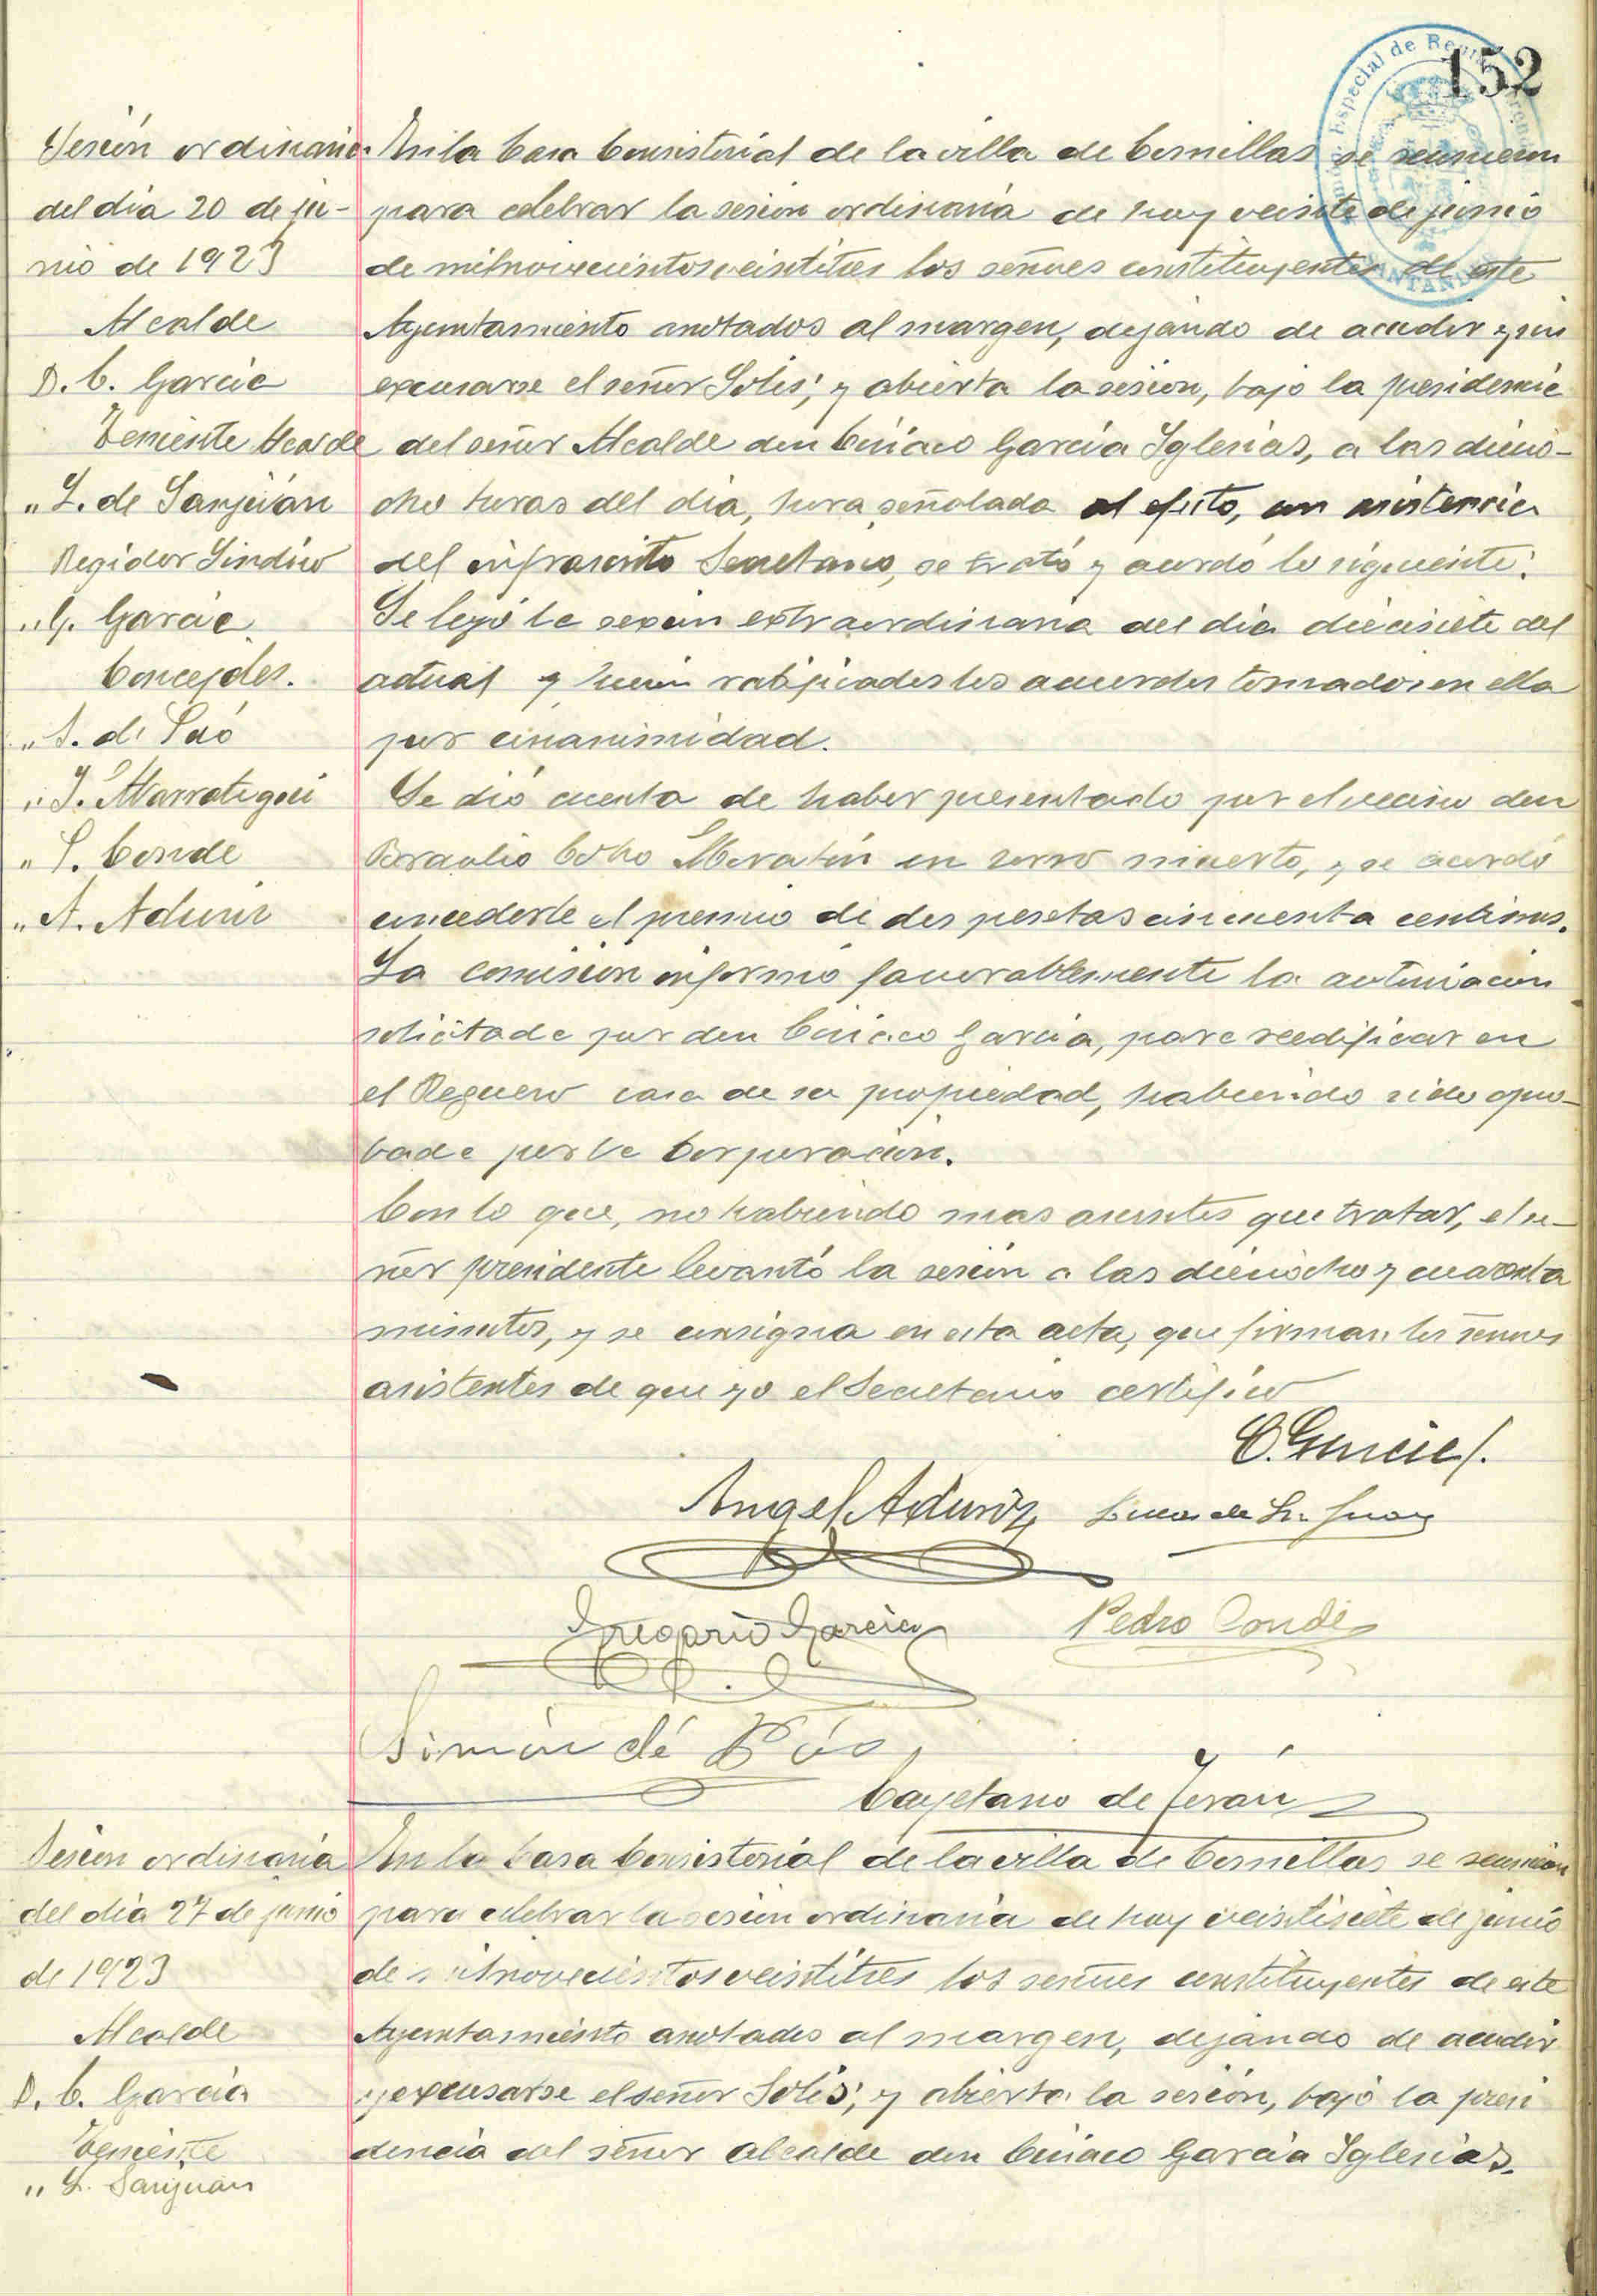 152
Sesión ordinaria
del día 20 de ju-
nio de 1923
Alcalde
D. C. García
Teniente Alcalde
" L. de Sanjuán
Regidor Síndico
" G. García
Concejales.
" S. de Póo
" J. Marrotegui
" P. Conde
" A. Aduriz
En la Casa Consistorial de la villa de Comillas se reunieron
para celebrar la sesión ordinaria de hoy veinte de junio
de mil novecientos veintitres los señores constituyentes de este
Ayuntamiento anotados al margen, dejando de acudir y sin
excusarse el señor Solís; y abierta la sesion, bajo la presidencia
del señor Alcalde don Ciriaco García Iglesias, a las diecio-
cho horas del día, hora señalada al efecto, con asistencia
del infrascrito Secretario, se trató y acordó lo siguiente:
Se leyó la sesión extraordinaria del día diecisiete del
actual y fueron ratificados los acuerdos tomados en ella
por unanimidad.
Se dió cuenta de haber presentado por el vecino don
Braulio Cobo Moratín un zorro muerto, y se acordó
concederle el premio de dos pesetas cincuenta centimos.
La comisión informó favorablemente la autorizacion
solicitada por don Ciriaco García, para reedificar en
el Reguero casa de su propiedad, habiendo sido apro-
bada por la Corporación.
Con lo que, no habiendo mas asuntos que tratar, el se-
ñor presidente levantó la sesión a las dieciocho y cuarenta
minutos, y se consigna en esta acta, que firman los señores
asistentes de que yo el Secretario certifico
C. García
Angel Aduriz Lucas de Sn Juan
Gregorio García Pedro Conde
Simón de Póo
Cayetano de Terán
Sesión ordinaria
del día 27 de junio
de 1923
Alcalde
D. C. García
Teniente
" L. Sanjuán
En la Casa Consistorial de la villa de Comillas se reunieron
para celebrar la sesión ordinaria de hoy veintisiete de junio
de mil novecientos veintitres los señores constituyentes de este
Ayuntamiento anotados al margen, dejando de acudir
y excusarse el señor Solís; y abierta la sesión, bajo la presi
dencia del señor alcalde don Ciriaco García Iglesias,